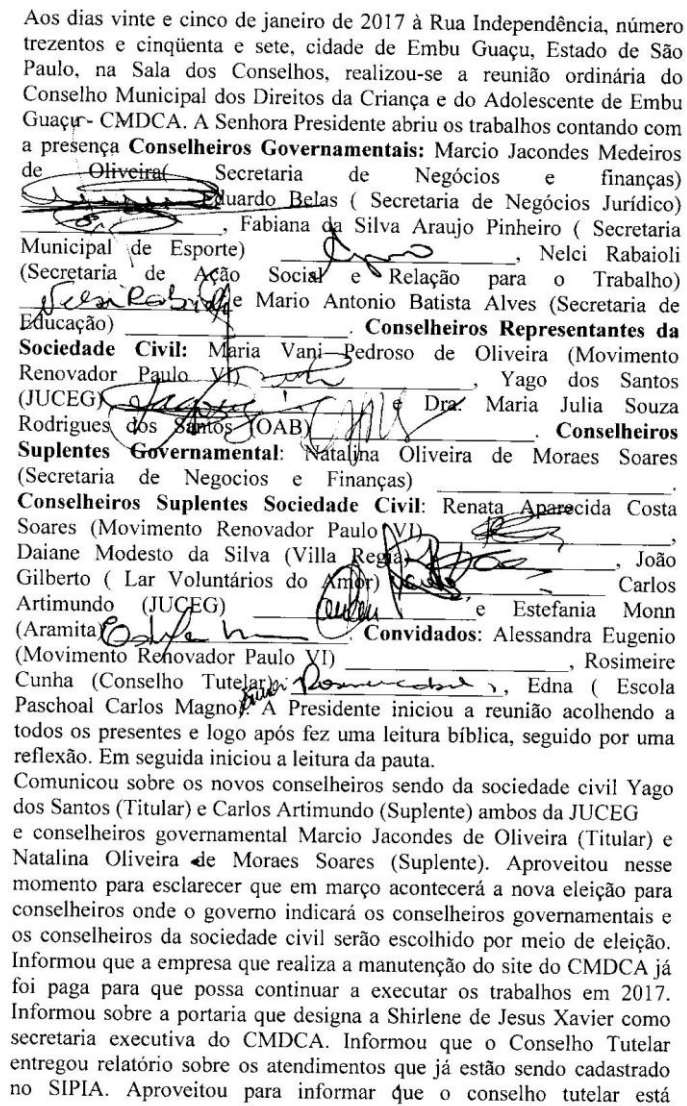 Aos dias vinte e cinco de janeiro de 2017 à Rua Independência, número
trezentos e cinqüenta e sete, cidade de Embu Guaçu, Estado de São
Paulo, na Sala dos Conselhos, realizou-se a reunião ordinária do
Conselho Municipal dos Direitos da Criança e do Adolescente de Embu
Guaçu- CMDCA. A Senhora Presidente abriu os trabalhos contando com
a presença Conselheiros Governamentais: Marcio Jacondes Medeiros
de Oliveira( Secretaria de Negócios e finanças)
Eduardo Belas ( Secretaria de Negócios Jurídico)
, Fabiana da Silva Araujo Pinheiro ( Secretaria
Municipal de Esporte) , Nelci Rabaioli
(Secretaria de Ação Social e Relação para o Trabalho)
Nelci Rabaioli e Mario Antonio Batista Alves (Secretaria de
Educação) . Conselheiros Representantes da
Sociedade Civil: Maria Vani Pedroso de Oliveira (Movimento
Renovador Paulo VI) , Yago dos Santos
(JUCEG) e Dra. Maria Julia Souza
Rodrigues dos Santos (OAB) . Conselheiros
Suplentes Governamental: Natalina Oliveira de Moraes Soares
(Secretaria de Negocios e Finanças) .
Conselheiros Suplentes Sociedade Civil: Renata Aparecida Costa
Soares (Movimento Renovador Paulo VI) ,
Daiane Modesto da Silva (Villa Regia) , João
Gilberto ( Lar Voluntários do Amor) Carlos
Artimundo (JUCEG) e Estefania Monn
(Aramita) Convidados: Alessandra Eugenio
(Movimento Renovador Paulo VI) , Rosimeire
Cunha (Conselho Tutelar) , Edna ( Escola
Paschoal Carlos Magno). A Presidente iniciou a reunião acolhendo a
todos os presentes e logo após fez uma leitura bíblica, seguido por uma
reflexão. Em seguida iniciou a leitura da pauta.
Comunicou sobre os novos conselheiros sendo da sociedade civil Yago
dos Santos (Titular) e Carlos Artimundo (Suplente) ambos da JUCEG
e conselheiros governamental Marcio Jacondes de Oliveira (Titular) e
Natalina Oliveira de Moraes Soares (Suplente). Aproveitou nesse
momento para esclarecer que em março acontecerá a nova eleição para
conselheiros onde o governo indicará os conselheiros governamentais e
os conselheiros da sociedade civil serão escolhido por meio de eleição.
Informou que a empresa que realiza a manutenção do site do CMDCA já
foi paga para que possa continuar a executar os trabalhos em 2017.
Informou sobre a portaria que designa a Shirlene de Jesus Xavier como
secretaria executiva do CMDCA. Informou que o Conselho Tutelar
entregou relatório sobre os atendimentos que já estão sendo cadastrado
no SIPIA. Aproveitou para informar que o conselho tutelar está